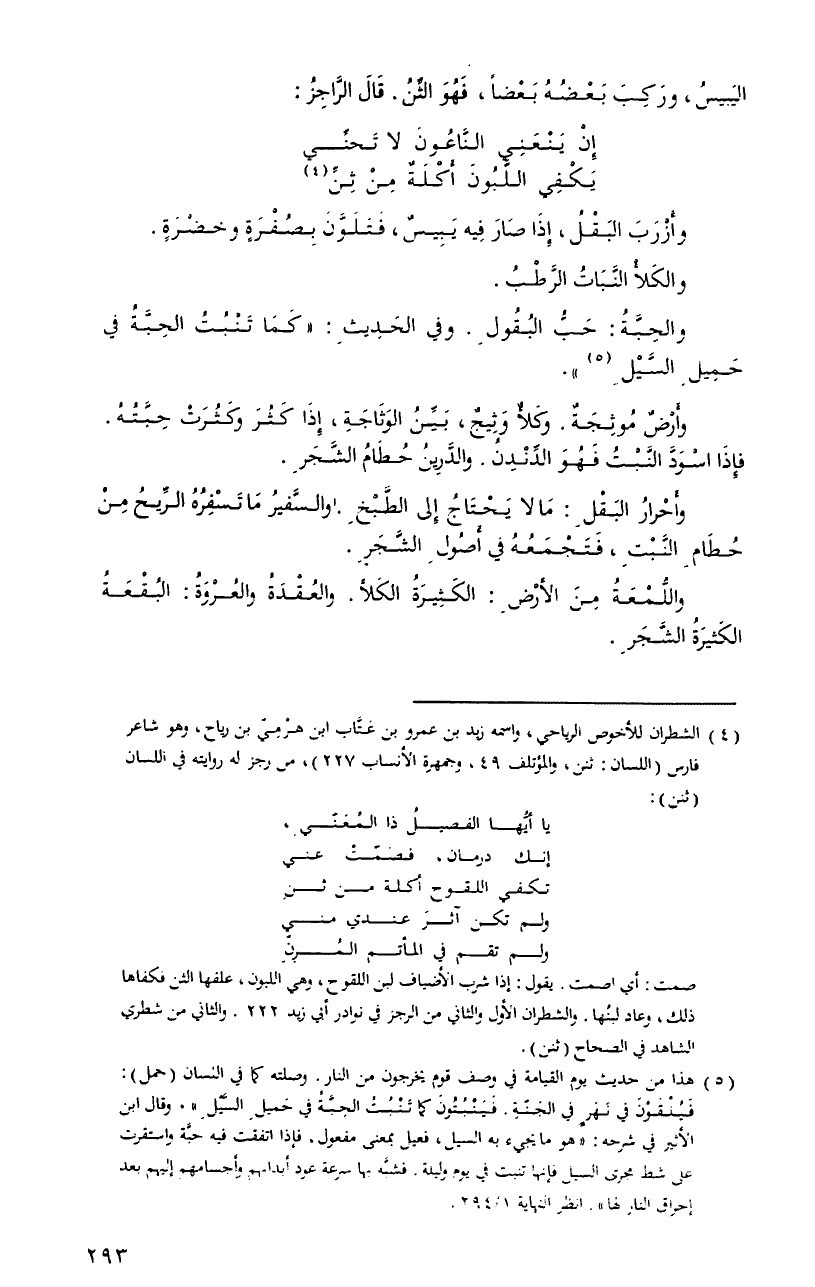 اليَبِيسُ ، ورَكِبَ بَعْضُهُ بَعْضاً ، فَهُوَ الثِّنُ . قَالَ الرَّاجِزُ :
إِنْ يَنْعَنِي النَّاعُونَ لا تَحنِّي
يَكْفِي اللَّبُونَ أَكْلَةٌ مِنْ ثِنِّ (٤)
وأَزْرَبَ البَقْلُ ، إِذَا صَارَ فِيه يَبِيسٌ ، فَتَلَوَّنَ بِصُفْرَةٍ وخضْرَةٍ .
والكَلأُ النَّبَاتُ الرَّطْبُ .
والحِبَّةُ : حَبُّ البُقُولِ . وفي الحَدِيثِ : « كَمَا تَنْبُتُ الحِبَّةُ في
حَمِيلِ السَّيْلِ (٥) » .
وأَرْضٌ مُوثِجَةٌ . وكَلأٌ وَثِيجٌ ، بَيِّنُ الوَثَاجَةِ ، إِذَا كَثُرَ وكَثُرَتْ حِبَّتُهُ .
فإِذَا اسْوَدَّ النَّبْتُ فَهُوَ الدِّنْدِنُ . والدَّرِينُ حُطَامُ الشَّجَرِ .
وأَحْرارُ البَقْلِ : مَا لا يَحْتَاجُ إلى الطَّبْخِ . والسَّفيرُ مَا تَسْفِرُهُ الرِّيحُ مِنْ
حُطَامِ النَّبْتِ ، فَتَجْمَعُهُ في أُصُولِ الشَّجَرِ .
واللُّمْعَةُ مِنَ الأَرْضِ : الكَثِيرَةُ الكَلأ . والعُقْدَةُ والعُرْوَةُ : البُقْعَةُ
الكَثيرَةُ الشَّجَرِ .
(٤) الشطران للأخوص الرياحي ، واسمه زيد بن عمرو بن عَتَّاب ابن هرْمِيّ بن رياح ، وهو شاعر
فارس (اللسان : ثنن ، والمؤتلف ٤٩ ، وجمهرة الأنساب ٢٢٧) ، من رجز له روايته في اللسان
(ثنن) :
يا أَيُّها الفصيلُ ذا المُعَنّي ،
إنك درمان ، فصَمّتْ عني
تكفي اللقوح أكلة من ثن
ولم تكن آثرَ عندي مني
ولم تقم في المأتم المُرِنّ
صمت : أي اصمت . يقول : إذا شرب الأضياف لبن اللقوح ، وهي اللبون ، علفها الثن فكفاها
ذلك ، وعاد لبنُها . والشطران الأول والثاني من الرجز في نوادر أبي زيد ٢٢٢ . والثاني من شطري
الشاهد في الصحاح (ثنن) .
(٥) هذا من حديث يوم القيامة في وصف قوم يخرجون من النار . وصلته كما في اللسان (حمل) :
فَيُلْقَوْنَ في نَهَرٍ في الجَنّةِ . فَيَنْبُتُونَ كما تَنْبُتُ الحِبَّةُ في حَمِيلِ السَّيْلِ » . وقال ابن
الأثير في شرحه : « هو ما يجيء به السيل ، فعيل بمعنى مفعول . فإذا اتفقت فيه حبَّة واستقرت
على شط مجرى السيل فإنها تنبت في يوم وليلة . فشبَّه بها سرعة عود أبدانهم وأجسامهم إليهم بعد
إحراق النار لها » . انظر النهاية ١/ ٢٩٤ .
٢٩٣